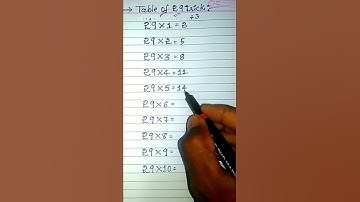 → Table of 29 trick:
+3
29×1=2
29×2=5
29×3=8
29×4=11
29×5=14
29×6=
29×7=
29×8=
29×9=
29×10=